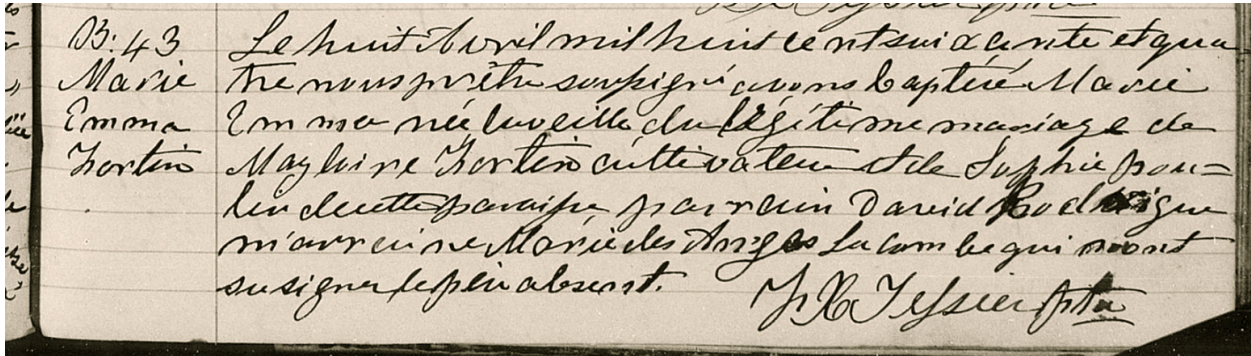 B. 43
Marie
Emma
Fortin
Le huit Avril mil huit cent soixante et qua
tre nous prêtre soussigné avons baptisé Marie
Emma née la veille du légitime mariage de
Magloire Fortin cultivateur et de Sophie pou=
lin de cette paroisse parrain David Rodrigue
marraine Marie des Anges Lacombe qui n'ont
su signer le père absent.
F X Tessier ptre